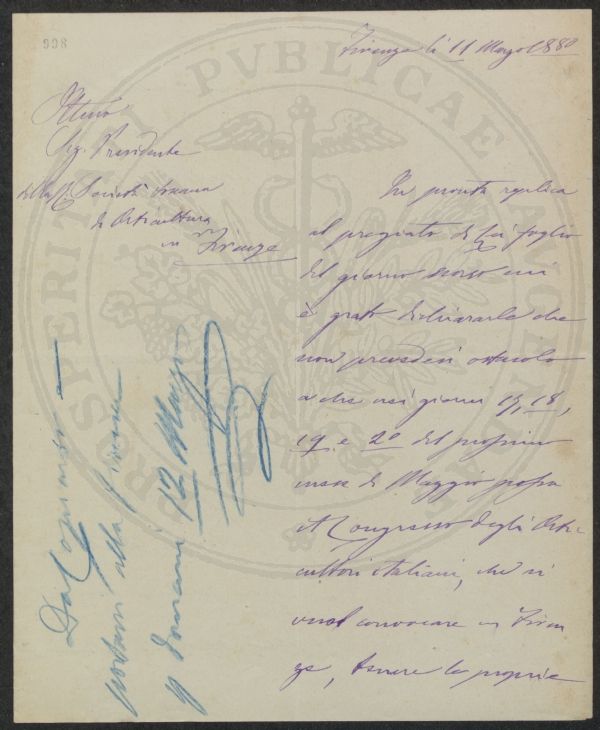 998
Firenze li 11 Marzo 1880
Illmo
Sig. Presidente
della R. Società toscana
di Orticultura
in Firenze
In pronta replica
al pregiato di Lei foglio
del giorno scorso mi
è grato dichiararle che
non prevedesi ostacolo
a che nei giorni 17, 18,
19 e 20 del prossimo
mese di Maggio possa
il Congresso degli Orti-
cultori italiani, che si
vuol convocare in Firen-
ze, tenere le proprie
Da
alla
p domani 12 Marzo
PVBLICAE
PROSPERITATI
AVGENDAE